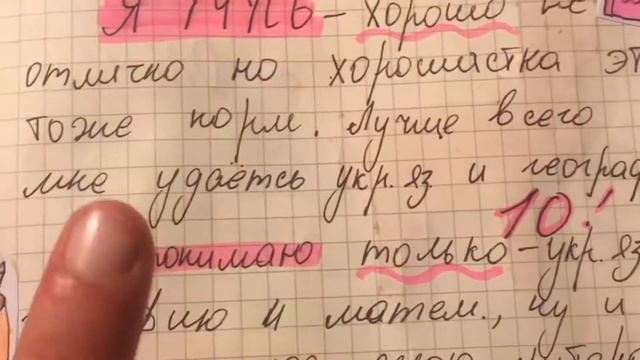 Я учусь - хорошо не
отлично но хорошистка эт
тоже норм. Лучше всего
мне удаётсь укр. яз и геогра
10!
понимаю только - укр. яз
ию и матем., ну и